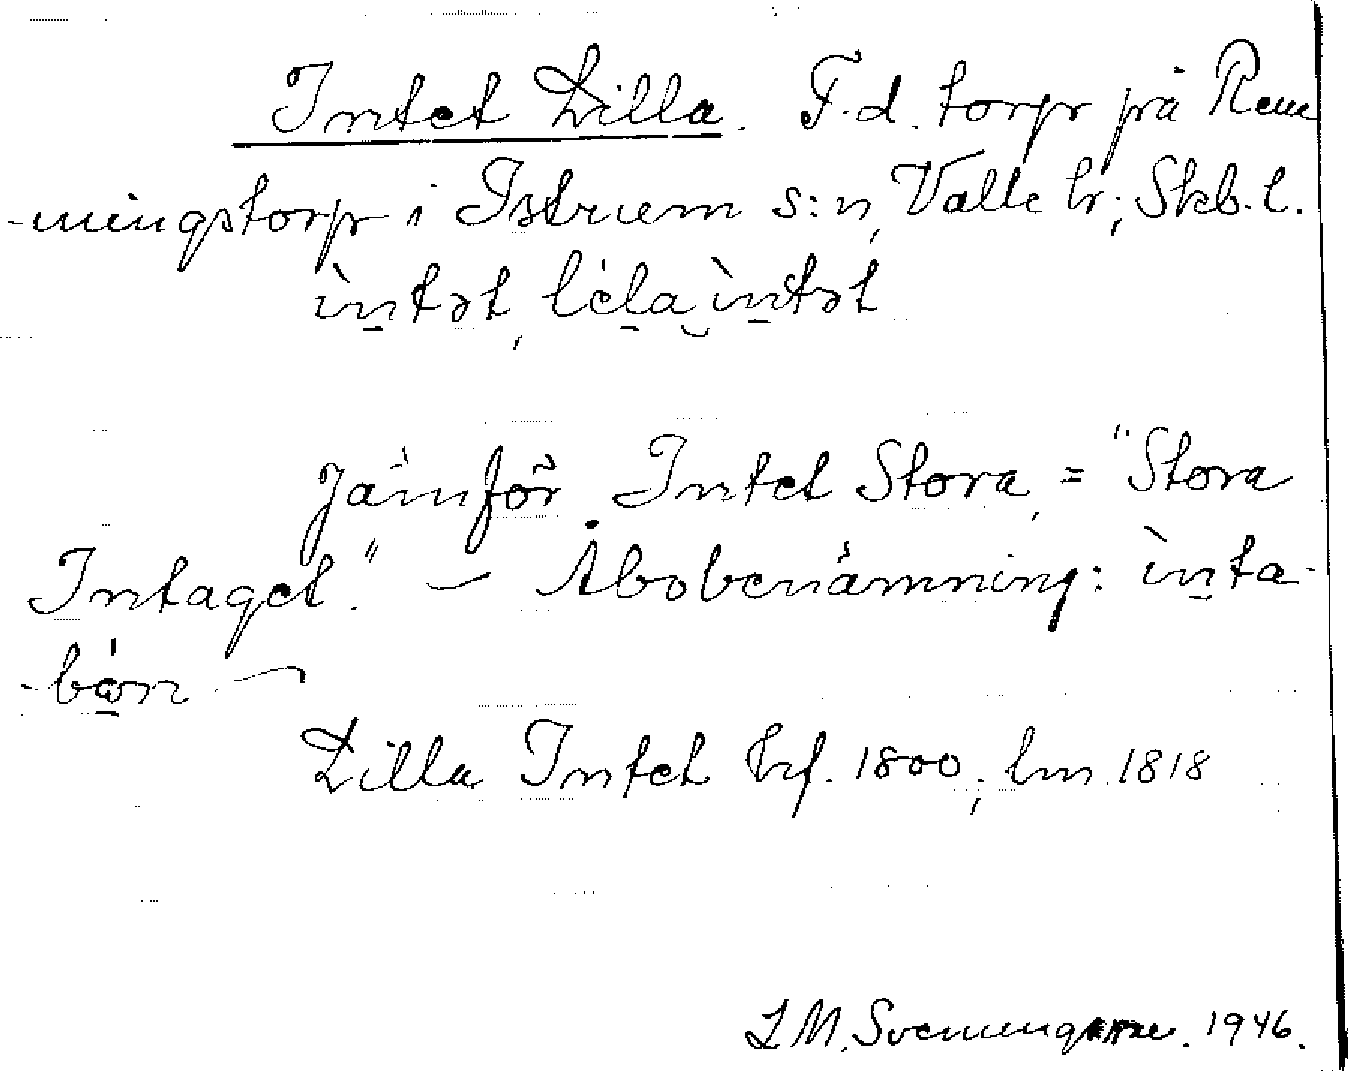 Intet Lilla. F.d. torp på Rem
-mingstorp i Istrum s:n, Valle hr; Skb. l.
ìntət, léla ìntət
Jämför Intet Stora, = "Stora
Intaget." — Åbobenämning: ìnta-
-bón —
Lilla Intet hf. 1800; hm 1818
L M. Svenungsson. 1946.